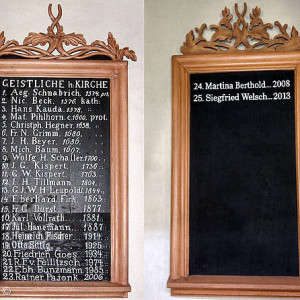 GEISTLICHE in KIRCHE
1. Aeg. Schnabrich. 1378, pit.
2. Nic. Beck. 1376. kath.
3. Hans Kauda.
4. Mat. Pihlhorn. c.1600. prot.
5. Christoph. Hegner. 1658,
6. Fr. N. Grimm, 1680,
7. J. H. Beyer, 1680,
8. Mich. Baum, 1697,
9. Wolfg. H. Schaller. 1700.
10. J. G. Kispert.
11. G. W. Kispert. 1763.
12. J. H. Tillmann. 1804.
13. G. J. W. H. Leupoldt. 1844.
14. Eberhard Firk. 1863
15. Fr. G. Dürst. 1877
16. Karl Vollrath. 1881
17. Jul. Hanemann. 1887
18. Heinrich Fischer. 1914
19. Otto Sittig. 1925
20. Friedrich Goes 1934
21. R.F.v. Feilitzsch 1974
22. Ebh. Bunzmann 1985
23. Rainer Pajonk 2006
24. Martina Berthold... 2008
25. Siegfried Welsch... 2013